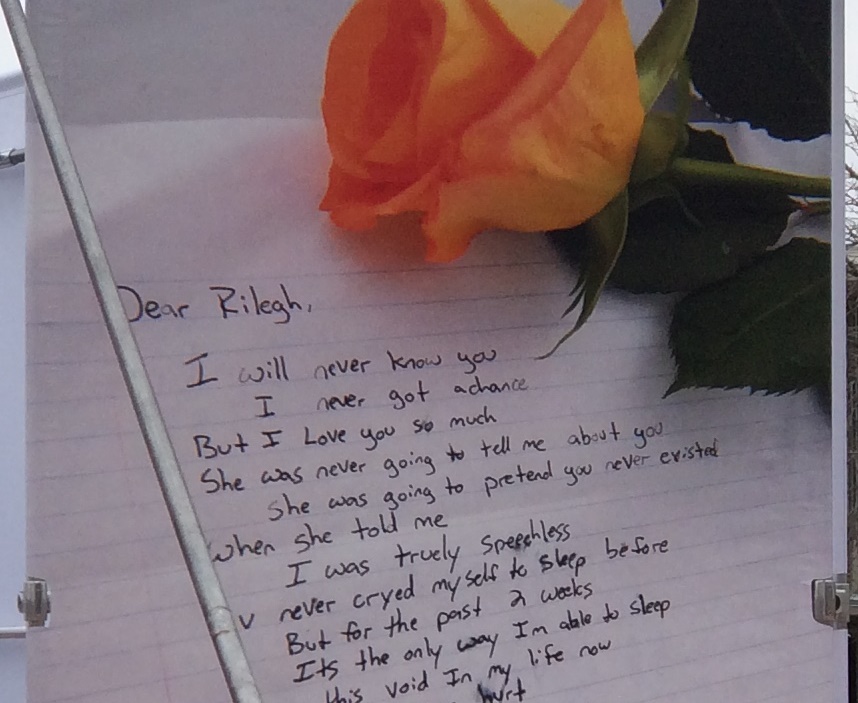 Dear Rilegh,
I will never know you
I never got a chance
But I Love you so much
She was never going to tell me about you
She was going to pretend you never existed
when she told me
I was truely speechless
never cryed myself to sleep before
But for the past 2 weeks
Its the only way Im able to sleep
this void In my life now
hurt